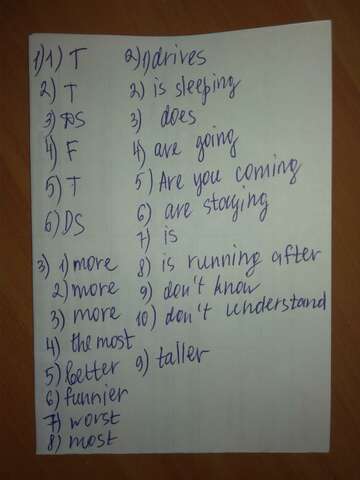 1) 1) T
2) T
3) DS
4) F
5) T
6) DS
2) 1) drives
2) is sleeping
3) does
4) are going
5) Are you coming
6) are staying
7) is
8) is running after
9) don't know
10) don't understand
3) 1) more
2) more
3) more
4) the most
5) better
6) funnier
7) worst
8) most
9) taller